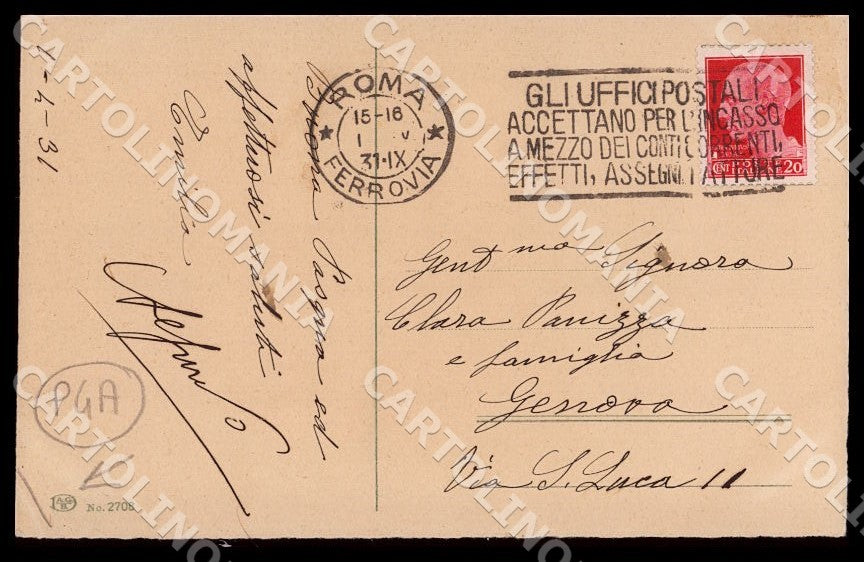 1-4-31
Buona Pasqua ed
affettuosi saluti
Emilia
ROMA
15-16
1 V
31·IX
FERROVIA
GLI UFFICI POSTALI
ACCETTANO PER L'INCASSO
A MEZZO DEI CONTI CORRENTI,
EFFETTI, ASSEGNI, FATTURE
CENT 20
Gent ma Signora
Clara Panizza
e famiglia
Genova
Via S. Luca 11
P4A
A.G.
B.
No. 2706
CARTOLINOMANIA